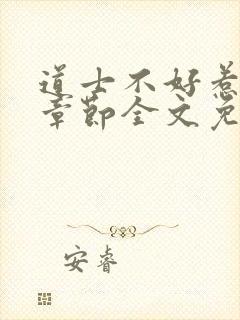 道士不好惹
章节全文免
安睿